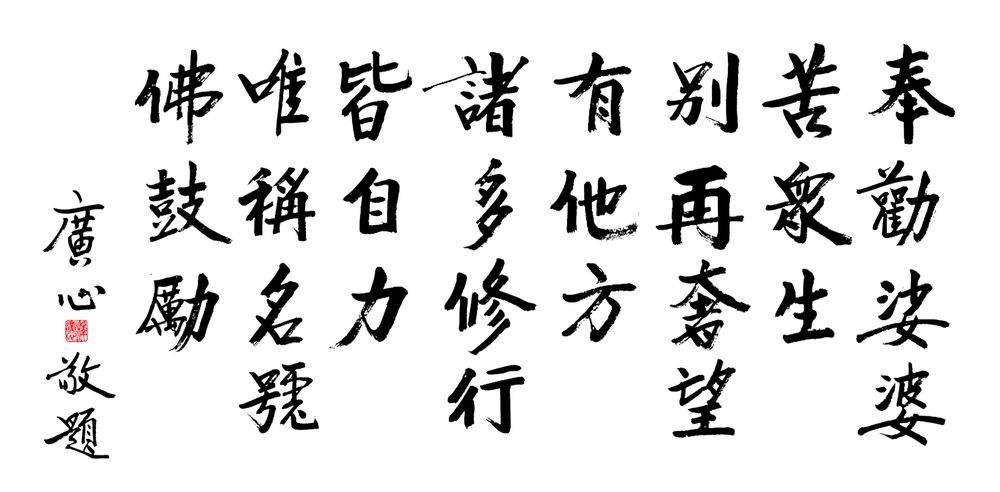 奉勸娑婆
苦眾生
別再奢望
有他方
諸多修行
皆自力
唯稱名號
佛鼓勵
廣心敬題